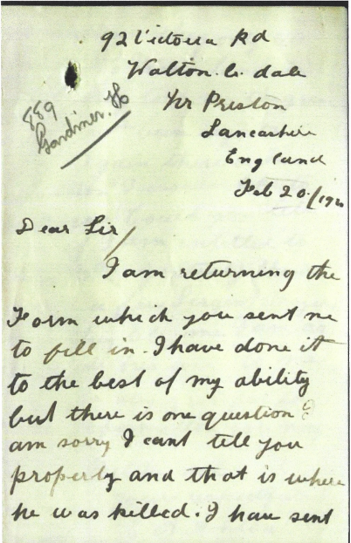 92 Victoria Rd
Walton. le. dale
Nr Preston
Lancashire
England
Feb 20/192
889
Gardiner, H
Dear Sir/
I am returning the
Form which you sent me
to fill in. I have done it
to the best of my ability
but there is one question I
am sorry I cant tell you
properly and that is where
he was killed. I have sent